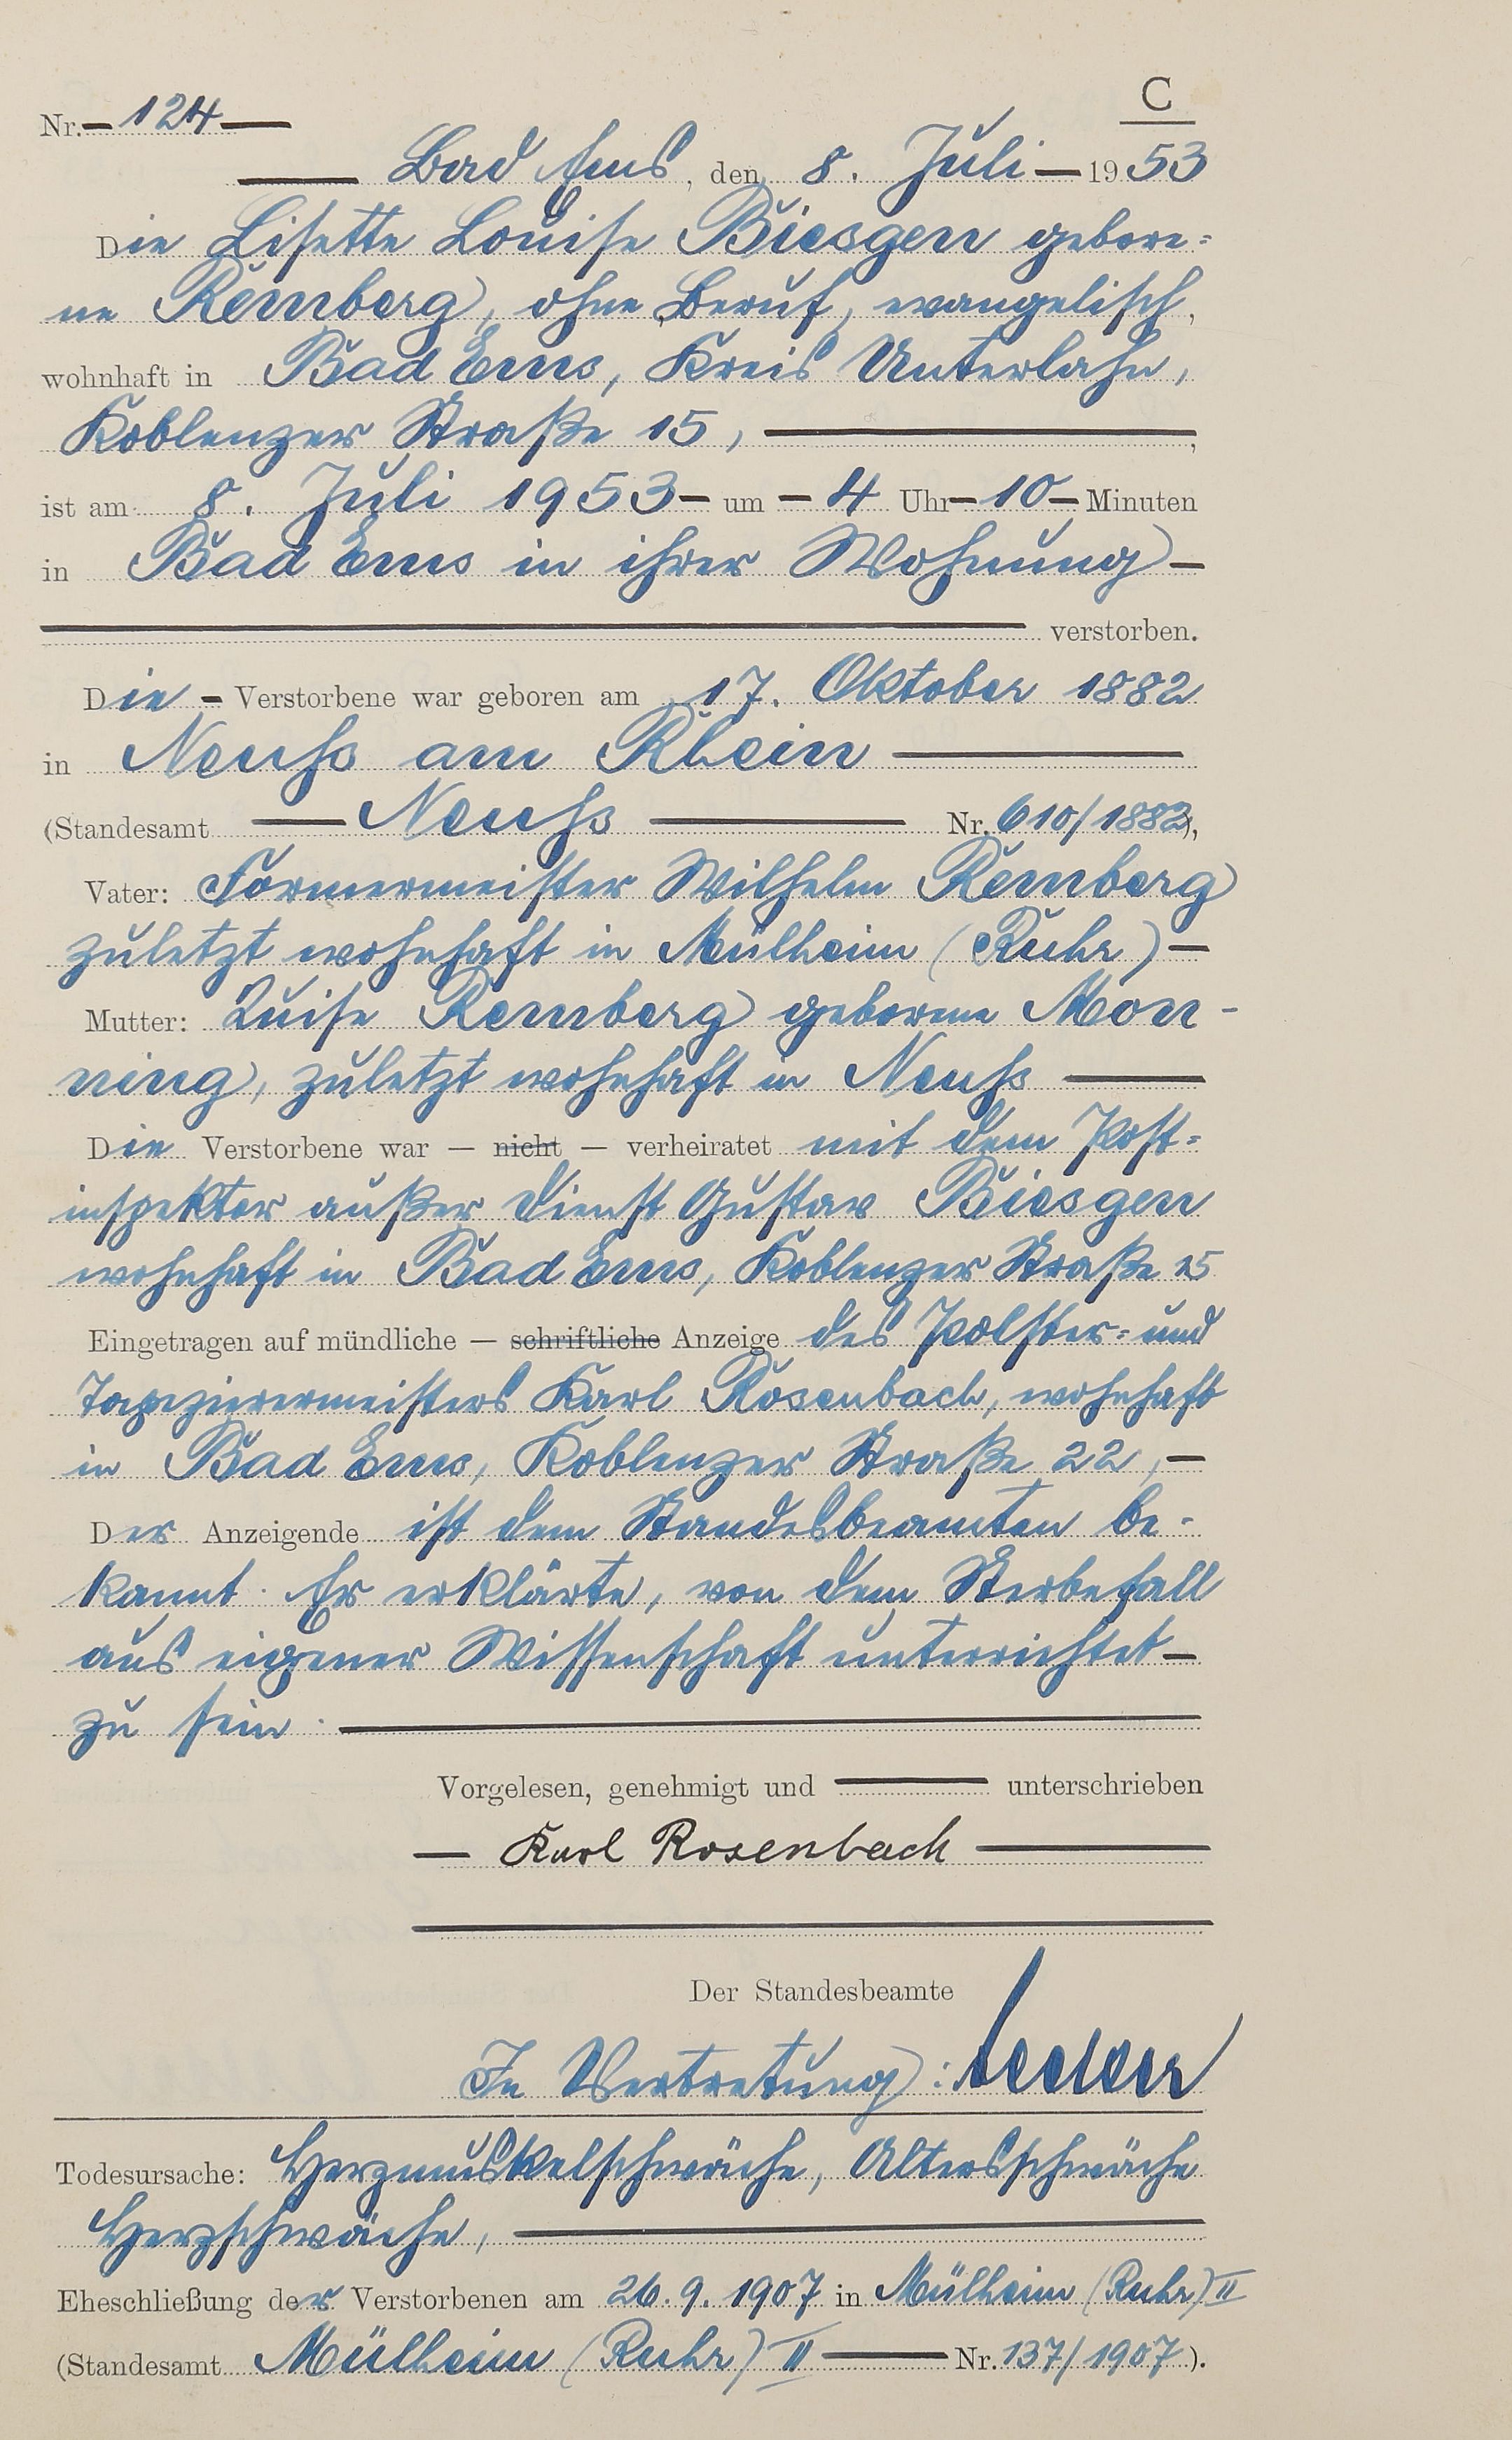 C
Nr. 124
Bad Ems, den 8. Juli 1953
Die Lisette Louise Biesgen gebore=
ne Remberg, ohne Beruf, evangelisch,
wohnhaft in Bad Ems, Kreis Unterlahn,
Koblenzer Straße 15,
ist am 8. Juli 1953 um 4 Uhr 10 Minuten
in Bad Ems in ihrer Wohnung
verstorben.
Die Verstorbene war geboren am 17. Oktober 1882
in Neuß am Rhein
(Standesamt Neuß Nr. 610/1882),
Vater: Formermeister Wilhelm Remberg
zuletzt wohnhaft in Mülheim (Ruhr)
Mutter: Luise Remberg geborene Mon-
ning, zuletzt wohnhaft in Neuß
Die Verstorbene war — nicht — verheiratet mit dem Post=
inspektor außer Dienst Gustav Biesgen
wohnhaft in Bad Ems, Koblenzer Straße 15
Eingetragen auf mündliche — schriftliche Anzeige des Polster= und
Tapezierermeisters Karl Rosenbach, wohnhaft
in Bad Ems, Koblenzer Straße 22,
Der Anzeigende ist dem Standesbeamten be-
kannt. Er erklärte, von dem Sterbefall
aus eigener Wissenschaft unterrichtet
zu sein.
Vorgelesen, genehmigt und unterschrieben
Karl Rosenbach
Der Standesbeamte
In Vertretung:
Todesursache: Herzmuskelschwäche, Altersschwäche
Herzschwäche,
Eheschließung der Verstorbenen am 26.9.1907 in Mülheim (Ruhr) II
(Standesamt Mülheim (Ruhr) II Nr. 137/1907).